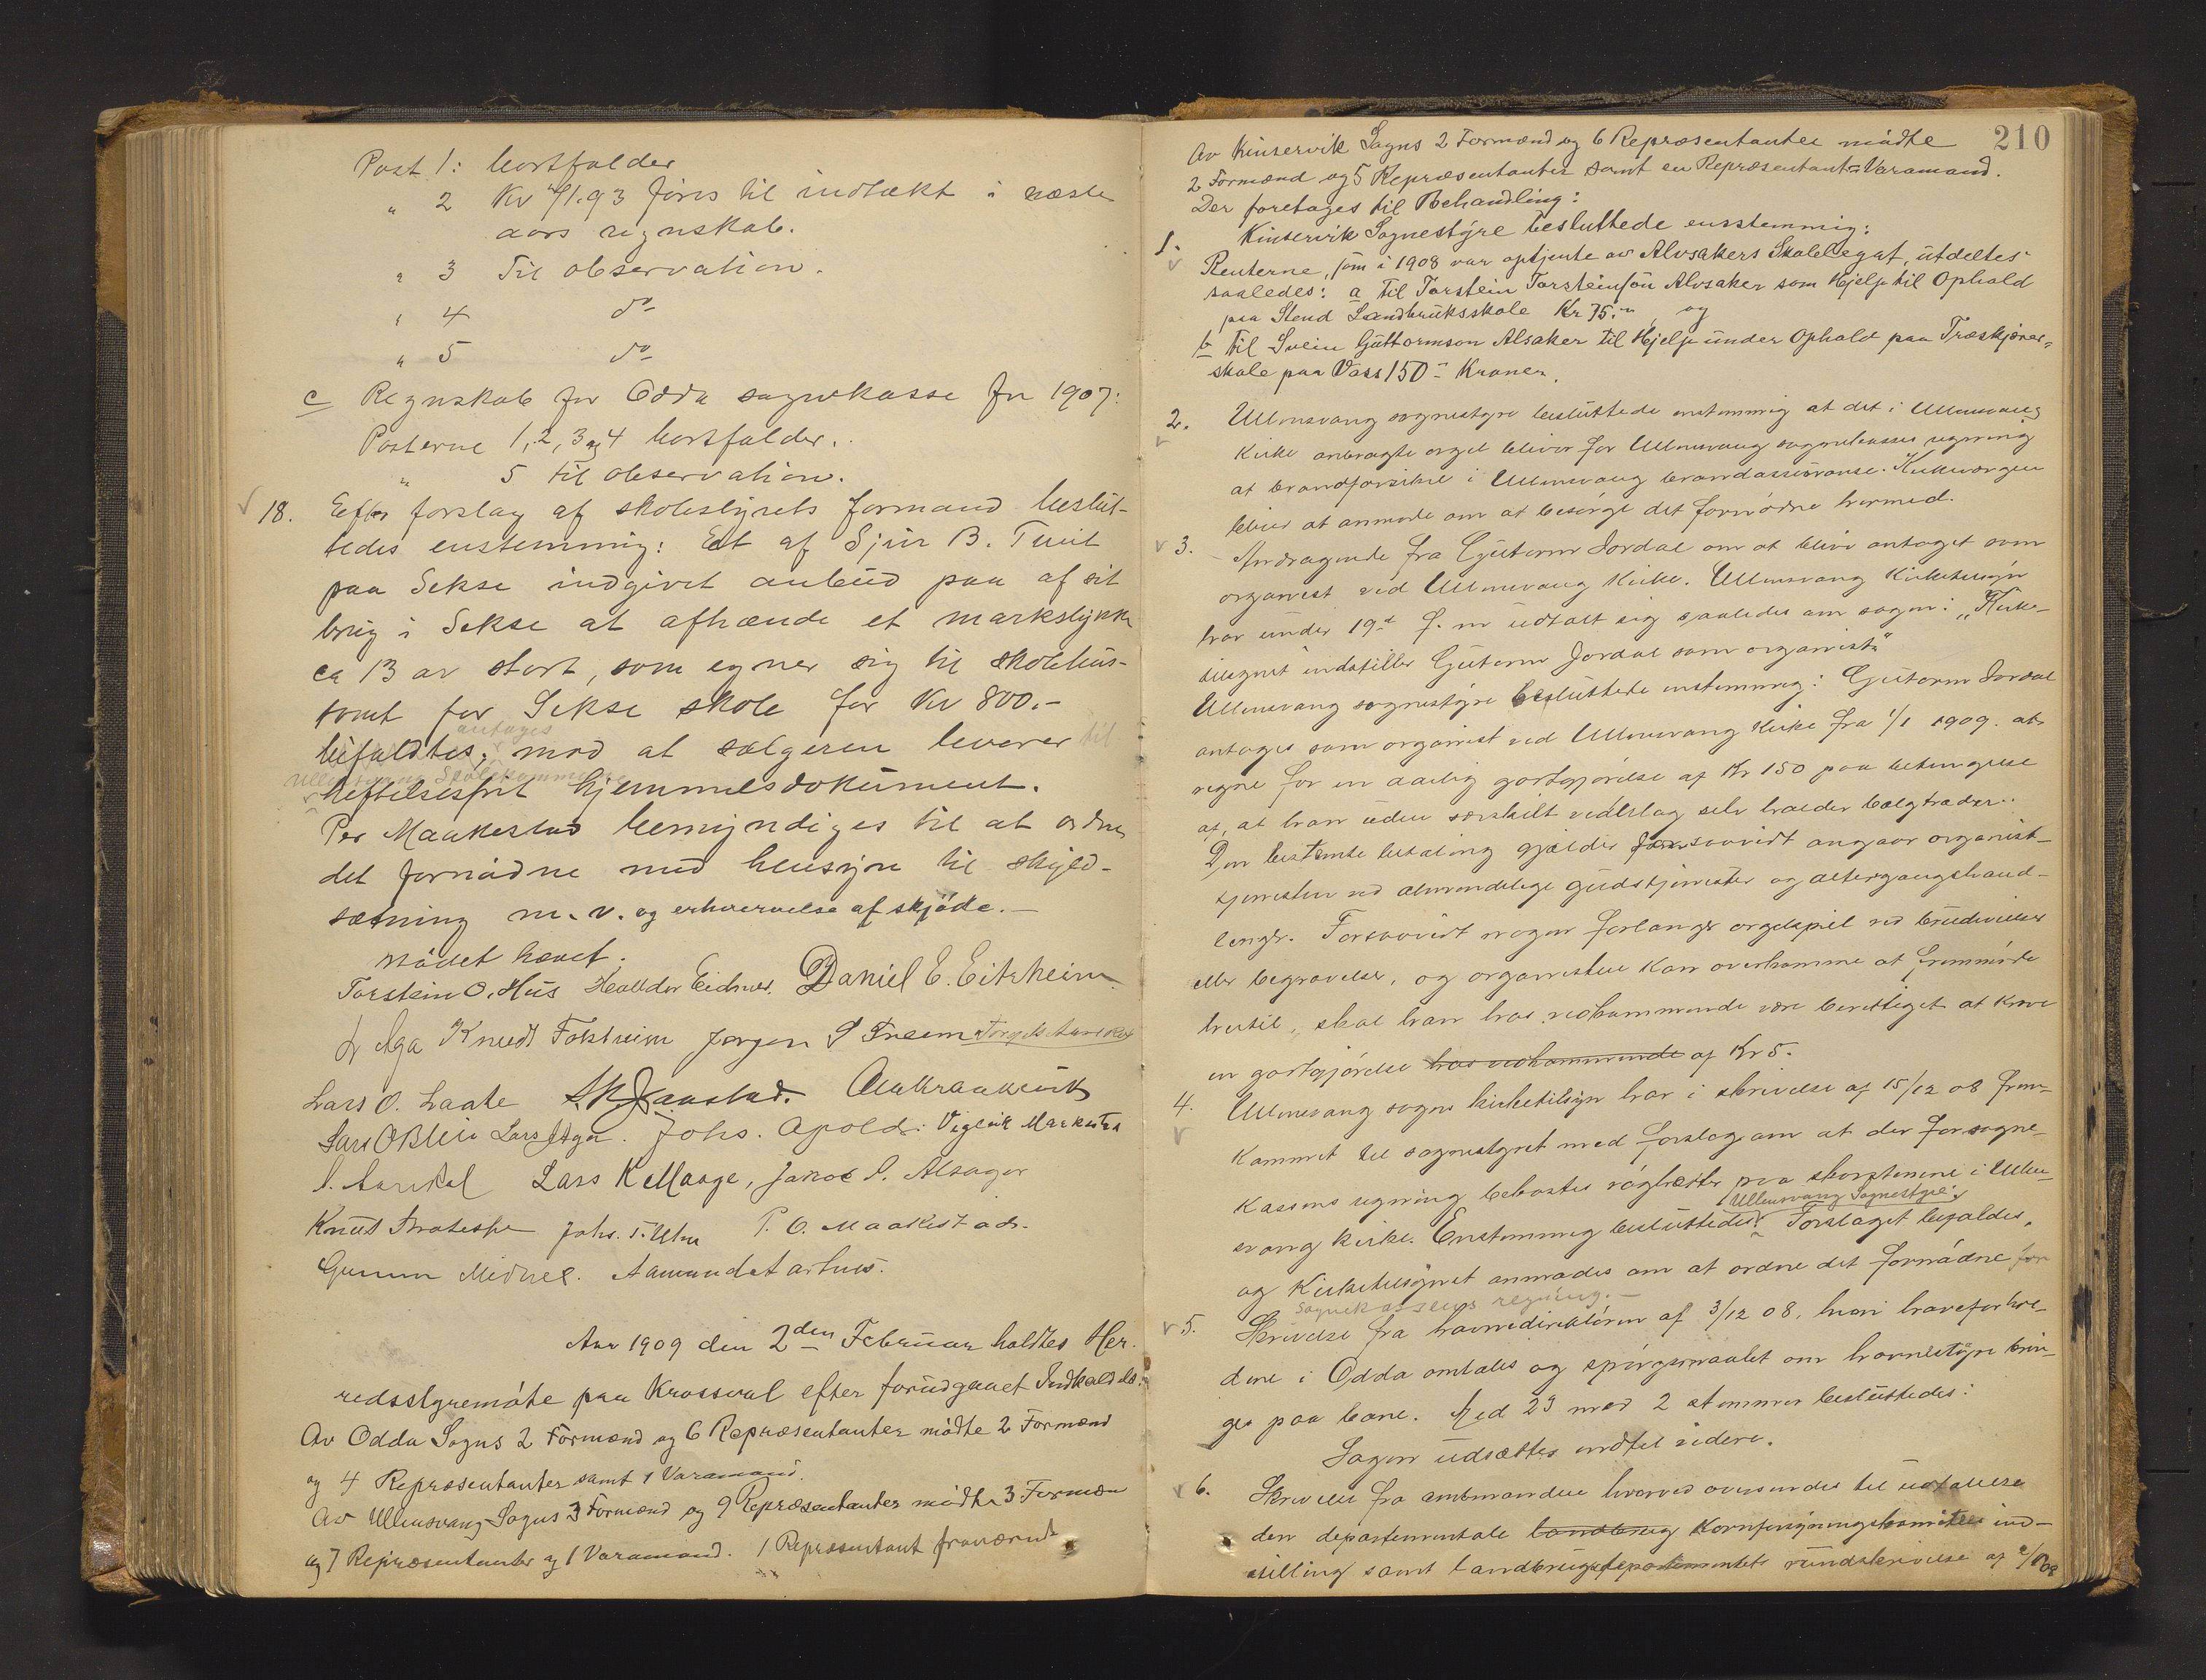 Post 1: bortfalder
" 2 Kr 41.93 føres til indtækt i næste
aars regnskab.
" 3 Til observation.
" 4 do
" 5 do
c Regnskab for Odda sognekasse for 1907:
Posterne 1, 2, 3 og 4 bortfalder.
" 5 til observation.
18. Efter forslag af skolestyrets formand beslut-
tedes enstemmig: Et af Sjur B. Tveit
paa Sekse indgivet anbud paa af sit
brug i Sekse at afhænde et markstykke
ca 13 ar stort, som egner sig til skolehus-
tomt for Sekse skole for Kr 800.-
antages
bifaldtes, mod at sælgeren leverer til
Ullensvang Skolekommune
heftelsesfrit hjemmelsdokument.
Per Maakestad bemyndiges til at ordne
det fornødne med hensyn til skyld-
sætning m.v. og erhvervelse af skjøde.-
Mødet hævet.
Torstein O. Hus Halldor Eidnes. Daniel E. Eitrheim
Aga Knudt Folkheim Jørgen P Freim Torgils Aarekol
Lars O. Laate
Lars O Bleie Lars Aga. Johs. Apold. Vigleik Markestad
Aarekol Lars K Maage, Jakob P. Alsager
Knut Johs. T. Utne P. O. Maakestad.
Gunnar Midnes. Aamund Aarhus.
Aar 1909 den 2den Februar holdtes Her-
redsstyremøte paa Krossvol efter forudgaaet Indkaldelse.
Av Odda Sogns 2 Formænd og 6 Repræsentanter mødte 2 Formænd
og 4 Repræsentanter samt 1 Varamand.
Av Ullensvang Sogns 3 Formænd og 9 Repræsentanter mødte 3 Formæn
og 7 Repræsentanter og 1 Varamand. 1 Repræsentant fraværende
210
Av Kinservik Sogns 2 Formænd og 6 Repræsentanter mødte
2 Formænd og 5 Repræsentanter samt en Repræsentant-Varamand.
Der foretages til Behandling:
1. Kinservik Sognestyre besluttede enstemmig:
Renterne, som i 1908 var optjente av Alvsakers Skolelegat, utdeltes
saaledes: a til Torstein Torsteinson Alvsaker som Hjelp til Ophold
paa Stend Landbruksskole Kr 75.-, og
b til Svein Guttormson Alsaker til Hjelp under Ophold paa Træskjærer-
skole paa Vass 150- Kroner.
2. Ullensvang sognestyre besluttede enstemmig at det i Ullensvang
kirke anbragte orgel bliver for Ullensvang sognekasses regning
at brandforsikre i Ullensvang brandassurance. Kirkevergen
bliver at anmode om at besørge det fornødne hermed.
3. Andragende fra Guttorm Jordal om at blive antaget som
organist ved Ullensvang kirke. Ullensvang kirketilsyn
har under 19de f. m udtalt sig saaledes om sagen: "Kirke-
tilsynet indstiller Guttorm Jordal som organist"
Ullensvang sognestyre besluttede enstemmig: Guttorm Jordal
antages som organist ved Ullensvang kirke fra 1/1 1909. at
regne for en aarlig godtgjørelse af Kr 150 paa betingelse
af, at han uden særskilt vederlag selv holder bælgtræder.
Den bestemte betaling gjælder forsaavidt angaar organist-
tjenesten ved almindelige gudstjenester og altergangshand-
linger. Forsaavidt nogen forlanger orgelspil ved brudevielser
eller begravelser, og organisten kan overkomme at fremmøde
hertil, skal han hos vedkommende være berettiget at kræve
en godtgjørelse hos vedkommende af Kr 5.
4. Ullensvang sogns kirketilsyn har i skrivelse af 15/12 08 frem-
kommet til sognestyret med forslag om at der for sogne-
kassens regning bekostes røghætter paa skorstenene i Ullen-
Ullensvang Sognestyre:
svang kirke. Enstemmig besluttedes: Forslaget bifaldes,
og Kirketilsynet anmodes om at ordne det fornødne for
Sognekassens regning.-
5. Skrivelse fra havnedirektøren af 3/12 08, hvori havneforhol-
dene i Odda omtales og spørgsmaalet om havnestyre brin-
ges paa bane. Med 23 mod 2 stemmer besluttedes:
Sagen udsættes indtil videre.
6. Skrivelse fra amtmanden hvorved oversendes til udtalelse
den departementale landbrug Kornforsyningskomites ind-
stilling samt landbrugsdepartementets rundskrivelse af